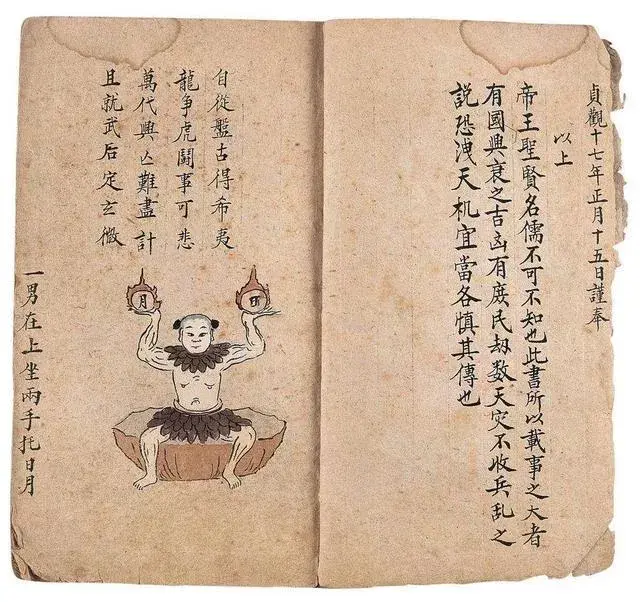 貞觀十七年正月十五日謹奉
以上
帝王聖賢名儒不可不知也此書所以載事之大者
有國興衰之吉凶有庶民劫数天灾不收兵乱之
説恐洩天机宜當各慎其傳也
自從盤古得希夷
龍争虎鬪事可悲
萬代興亾難盡計
且就武后定玄㣲
日
月
一男在上坐兩手托日月